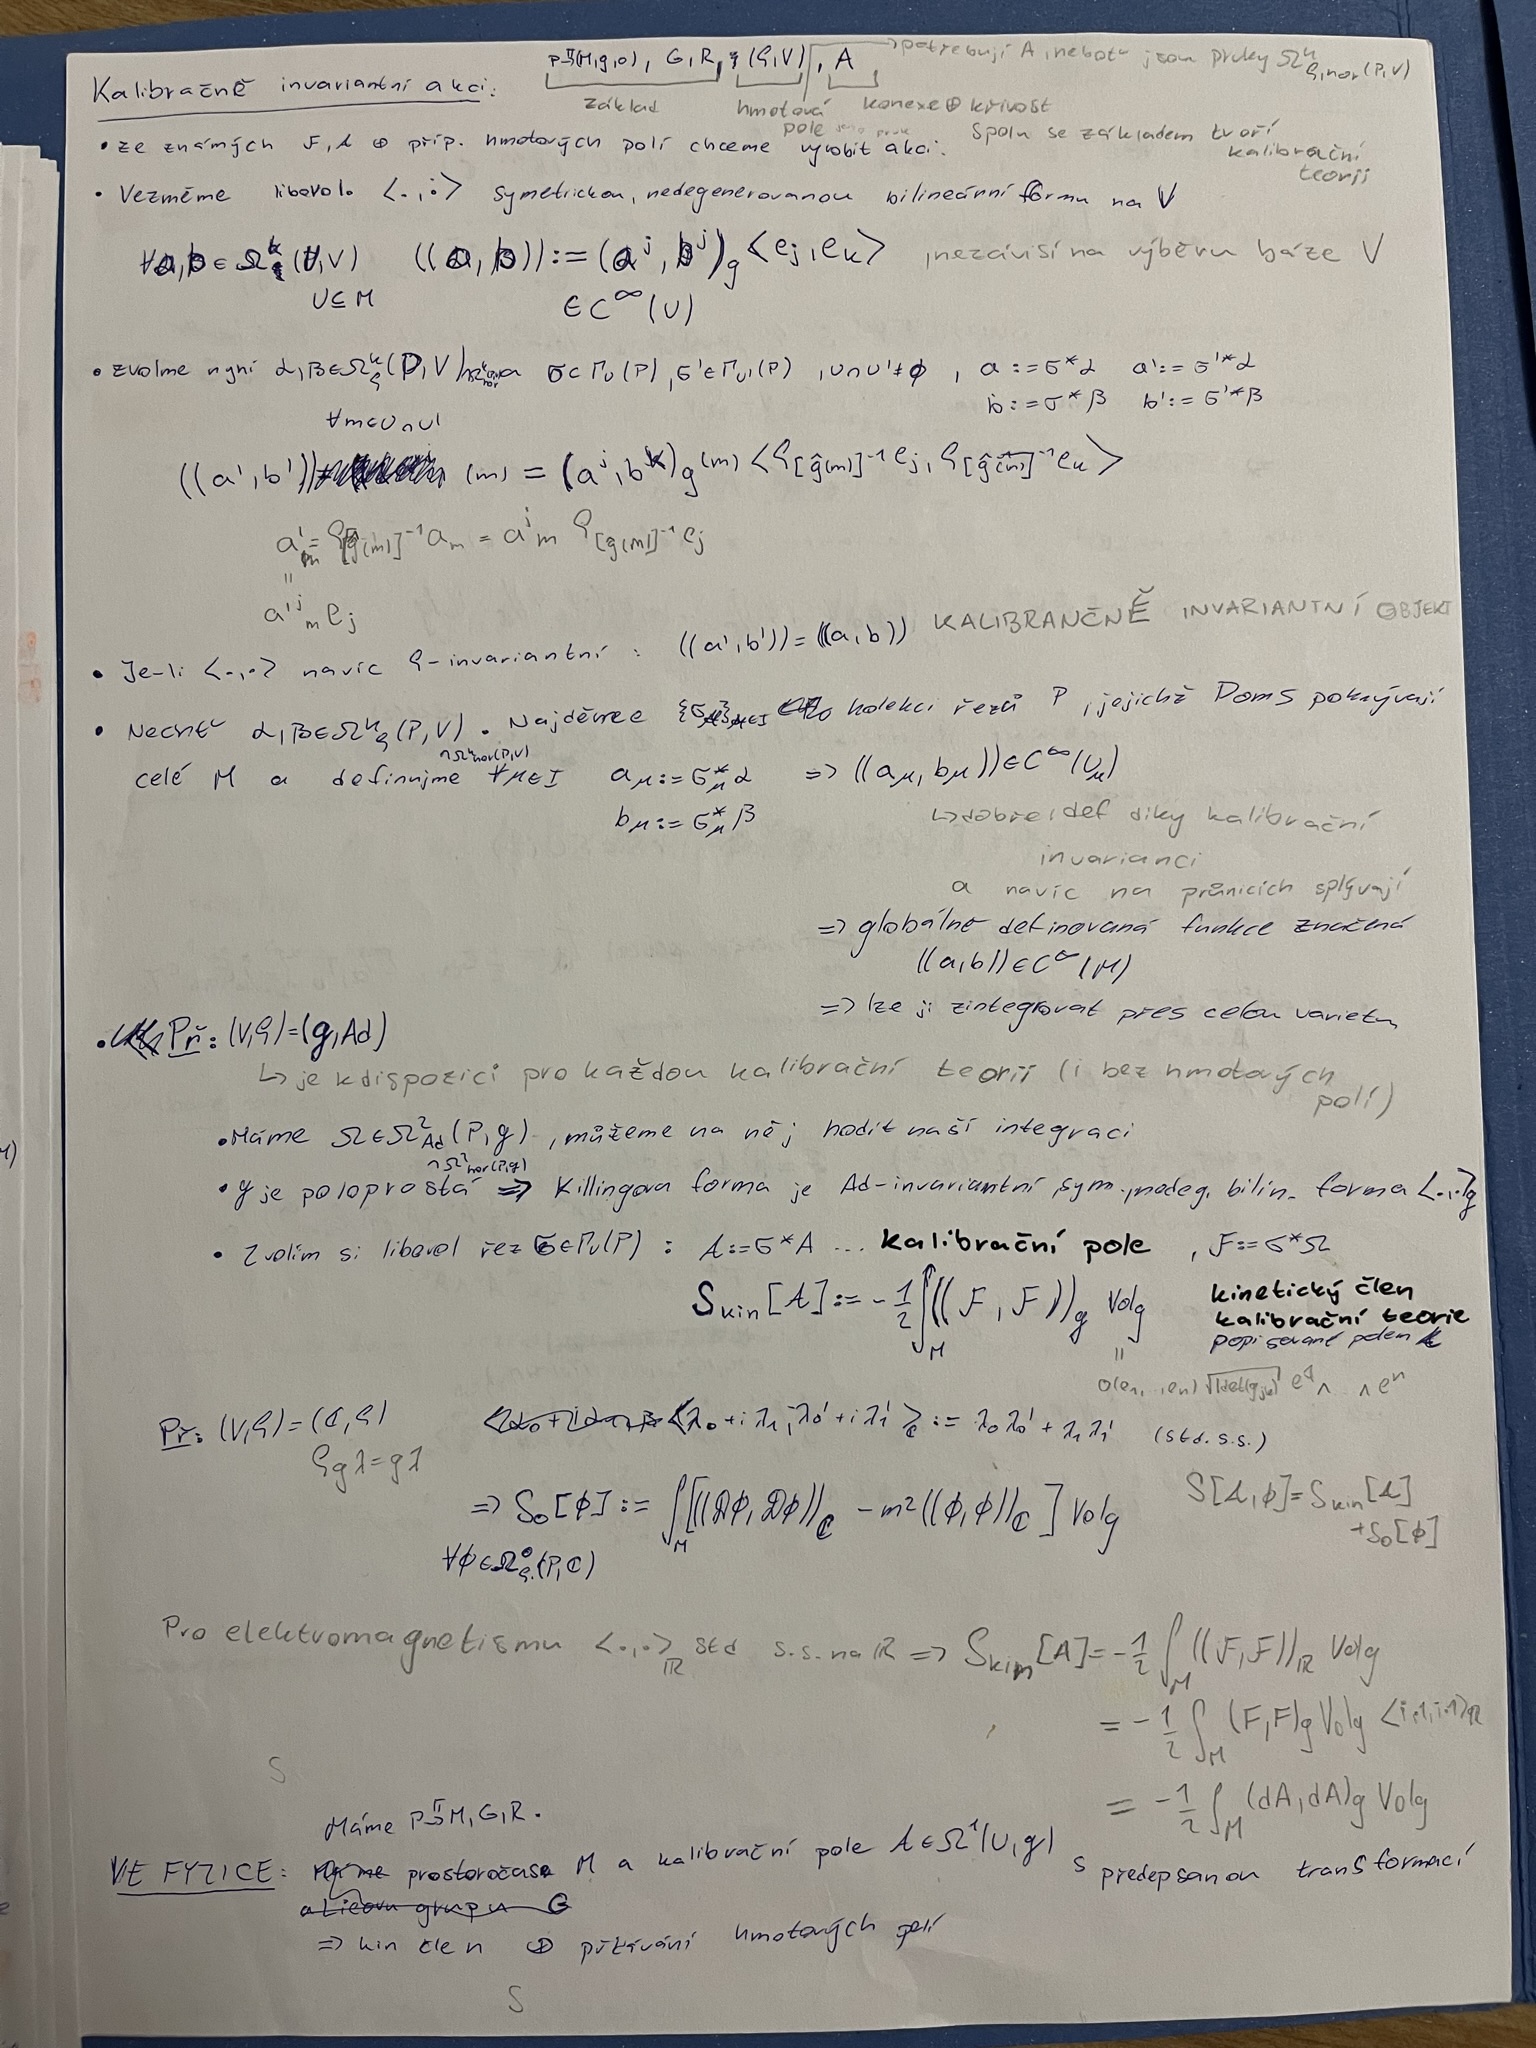 Kalibračně invariantní akci: P→(M,g,o), G,R, (ρ,V), A → potřebuji A, neboť jsou prvky Ω^k_{ρ,hor}(P,V)
základ hmotová pole konexe ⊕ křivost
spolu se základem tvoří kalibrační teorii
• ze známých F, A ⊕ příp. hmotových polí chceme vyrobit akci.
• Vezměme libovol. <.,.> symetrickou, nedegenerovanou bilineární formu na V
∀a,b ∈ Ω^k(U,V) ((a,b)) := (a^j, b^j)_g <e_j, e_k> , nezávisí na výběru báze V
U⊆M ∈ C^∞(U)
• zvolme nyní α,β ∈ Ω^k_ρ(P,V) a σ∈Γ_U(P), σ'∈Γ_U'(P) , U∩U'≠∅ , a := σ*α a' := σ'*α
b := σ*β b' := σ'*β
∀m∈U∩U'
((a',b')) (m) = (a^j, b^k)_g(m) <ρ_{[ĝ(m)]^{-1}} e_j, ρ_{[ĝ(m)]^{-1}} e_k>
a'_m = ρ_{[g(m)]^{-1}} a_m = a^j_m ρ_{[g(m)]^{-1}} e_j
=
a'^j_m e_j
• Je-li <.,.> navíc ρ-invariantní : ((a',b')) = ((a,b)) KALIBRANČNĚ INVARIANTNÍ OBJEKT
• Nechť α,β∈Ω^k_ρ(P,V) . Najděme {σ_μ}_{μ∈I} kolekci řezů P , jejichž Doms pokrývají
∩Ω^k_hor(P,V)
celé M a definujme ∀μ∈I a_μ := σ*_μ α ⇒ ((a_μ, b_μ)) ∈ C^∞(U_μ)
b_μ := σ*_μ β
↳ dobře def díky kalibrační
invarianci
a navíc na průnicích splývají
⇒ globálně definovaná funkce značená
((a,b)) ∈ C^∞(M)
⇒ lze ji zintegrovat přes celou varietu
• Př: (V,ρ)=(g,Ad)
↳ je k dispozici pro každou kalibrační teorii (i bez hmotových
polí)
• Máme Ω∈Ω²_Ad(P,g) , můžeme na něj hodit naší integraci
∩Ω²_hor(P,g)
• g je poloprostá ⇒ Killingova forma je Ad-invariantní, sym., nedeg. bilin. forma <.,.>g
• Zvolím si libovol řez σ∈Γ_U(P) : A := σ*A ... kalibrační pole , F := σ*Ω
S_kin[A] := -1/2 ∫_M ((F,F))_g Vol_g kinetický člen
kalibrační teorie
popisované polem A
= o(e_1,..,e_n) √|det(g_jk)| e^1∧..∧e^n
Př: (V,ρ)=(C,ρ) <λ_0+iλ_1, λ_0'+iλ_1'>_C := λ_0λ_0' + λ_1λ_1' (std. s.s.)
ρ_g λ = gλ
⇒ S_0[φ] := ∫_M [((Dφ,Dφ))_C - m²((φ,φ))_C ] Vol_g S[A,φ] = S_kin[A]
+ S_0[φ]
∀φ∈Ω⁰_ρ(P,C)
Pro elektromagnetismu <.,.>_R std s.s. na R ⇒ S_kin[A] = -1/2 ∫_M ((F,F))_R Vol_g
= -1/2 ∫_M (F,F)_g Vol_g <i.1,i.1>_R
= -1/2 ∫_M (dA,dA)_g Vol_g
S
Máme P→M,G,R.
VE FYZICE: prostoročase M a kalibrační pole A∈Ω¹(U,g) s předepsanou transformací
a Lieovu grupu G
⇒ kin člen ⊕ hmotových polí
S